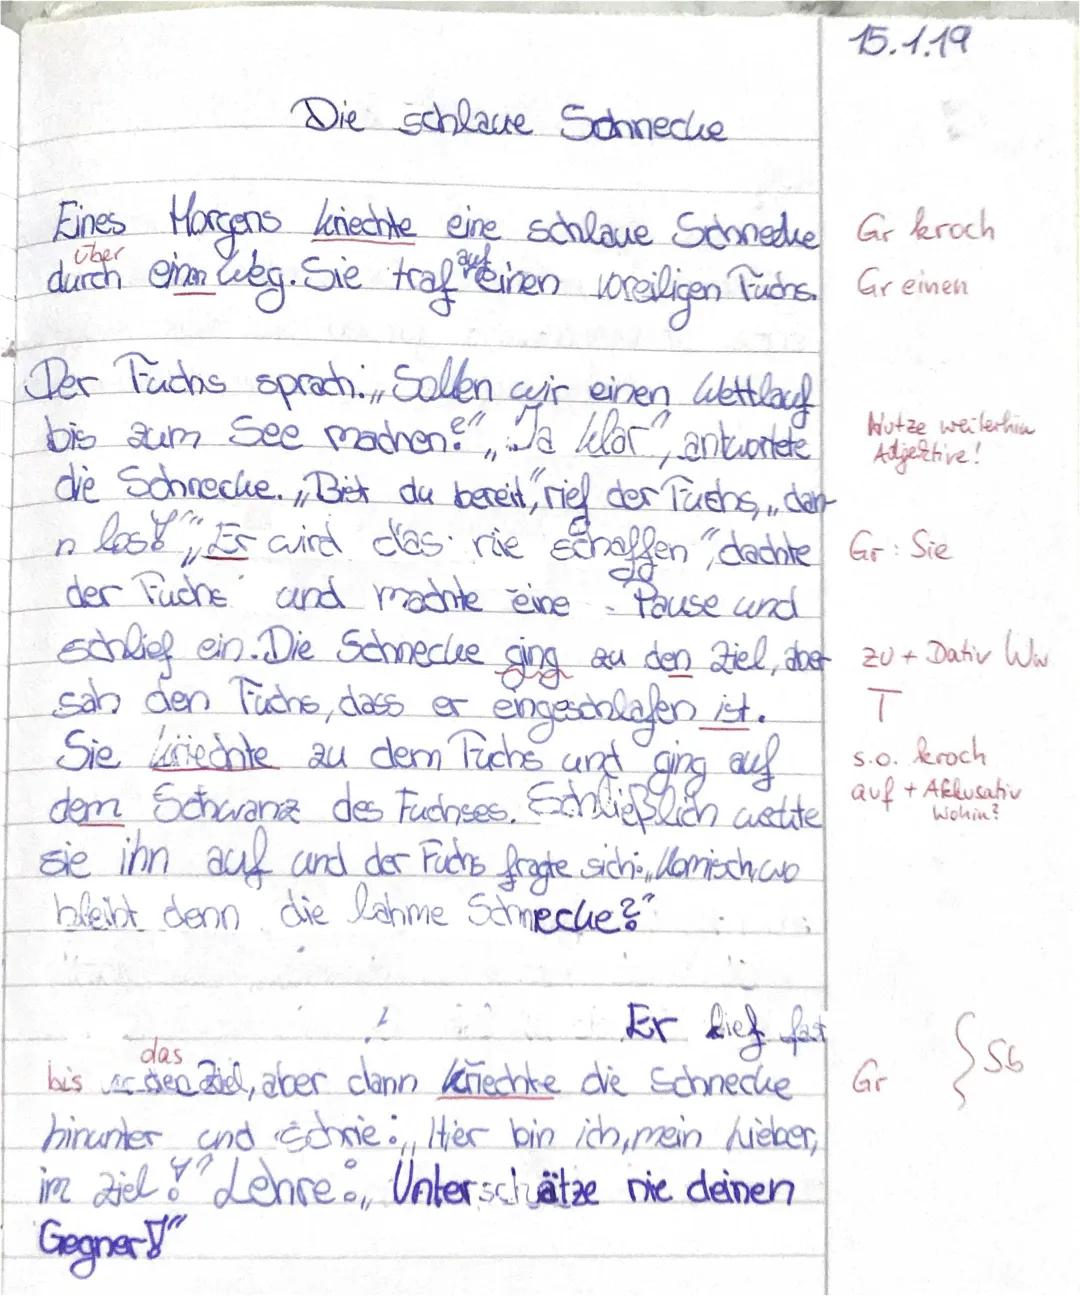 15.1.19
Die schlaue Schnecke
Eines Morgens kriechte eine schlaue Schnecke Gr kroch
über auf
durch einen Weg. Sie traf einen voreiligen Fuchs. Gr einen
Der Fuchs sprach: „Sollen wir einen Wettlauf
bis zum See machen?" „Ja klar", antwortete Nutze weiterhin
die Schnecke. „Bist du bereit," rief der Fuchs, „dan- Adjektive!
n los!" „Er wird das nie schaffen" dachte Gr: Sie
der Fuchs und machte eine Pause und
schlief ein. Die Schnecke ging zu den Ziel, aber zu + Dativ Ww
sah den Fuchs, dass er engeschlafen ist. T
Sie kriechte zu dem Fuchs und ging auf s.o. kroch
dem Schwanz des Fuchses. Schließlich weckte auf + Akkusativ
Wohin?
sie ihn auf und der Fuchs fragte sich: „Komisch, wo
bleibt denn die lahme Schnecke?"
Er lief fast
das
bis den Ziel, aber dann kriechte die Schnecke Gr Sb
hinunter und schrie: „Hier bin ich, mein Lieber,
im Ziel!" Lehre: „Unterschätze nie deinen
Gegner!"